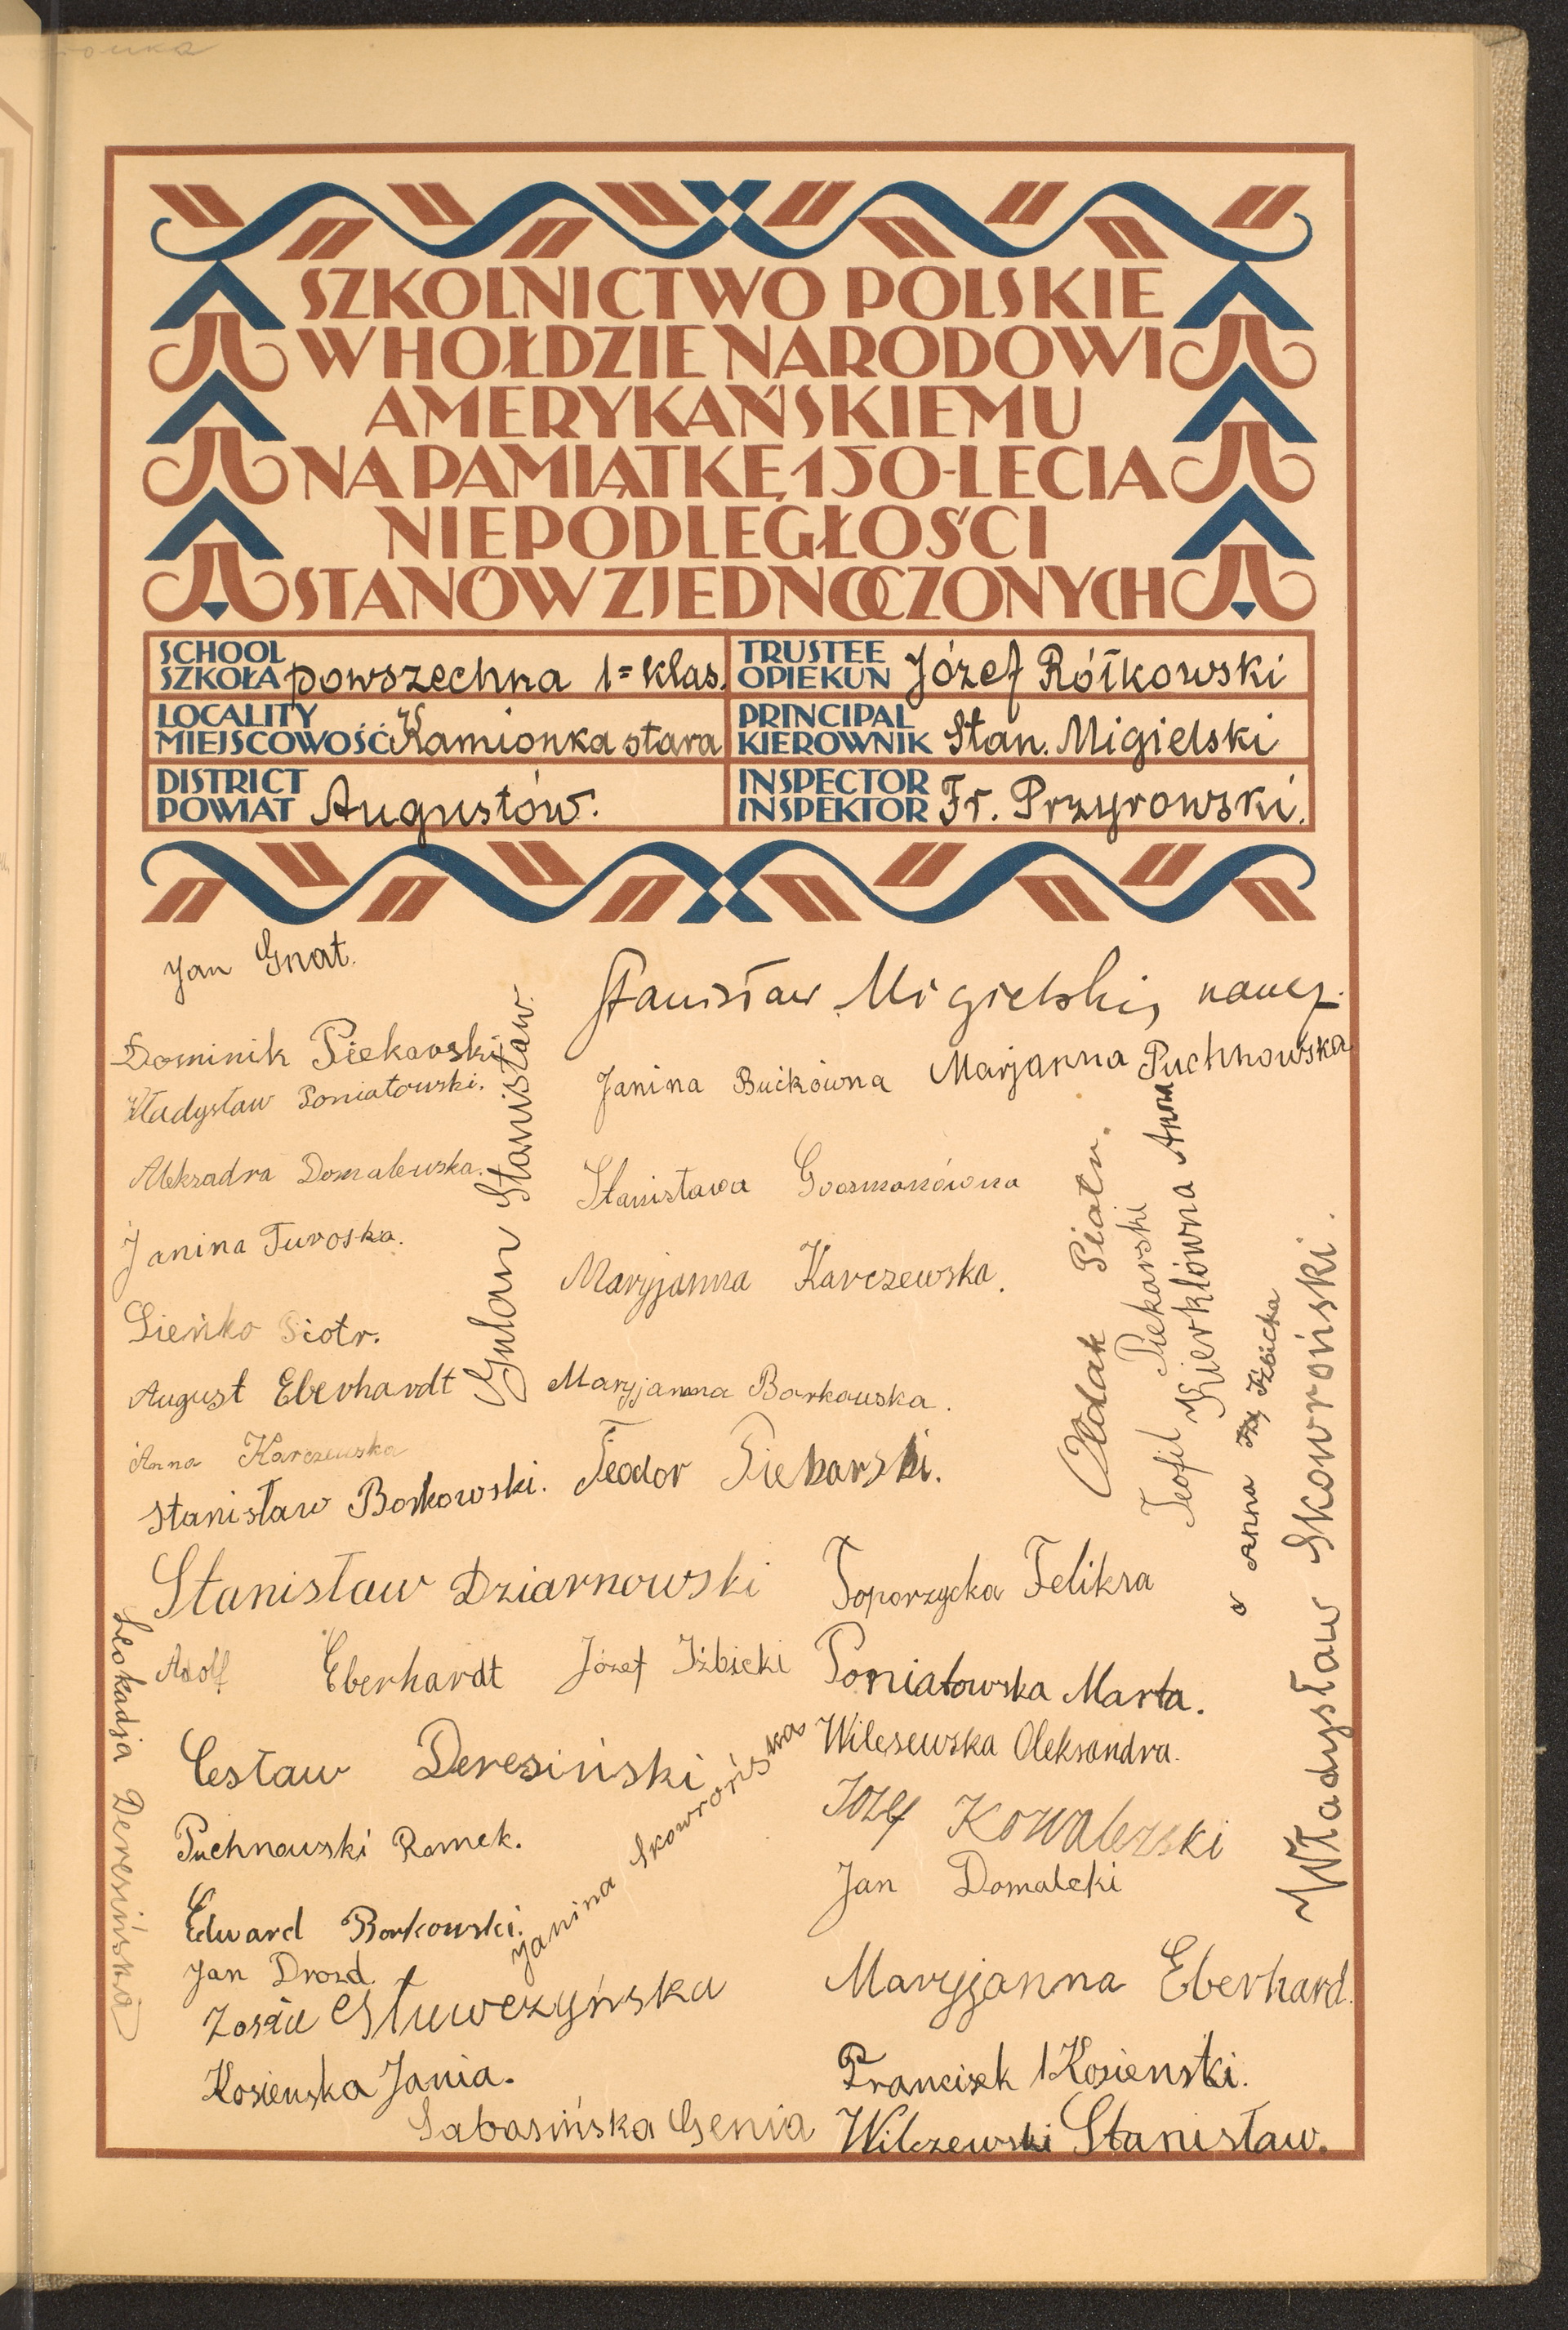 SZKOLNICTWO POLSKIE
W HOŁDZIE NARODOWI
AMERYKAŃSKIEMU
NA PAMIĄTKĘ 150-LECIA
NIEPODLEGŁOŚCI
STANÓW ZJEDNOCZONYCH
SCHOOL
SZKOŁA powszechna 1= klas.
TRUSTEE
OPIEKUN Józef Rółkowski
LOCALITY
MIEJSCOWOŚĆ Kamionka stara
PRINCIPAL
KIEROWNIK Stan. Migielski
DISTRICT
POWIAT Augustów.
INSPECTOR
INSPEKTOR Fr. Przyrowski.
Jan Gnat.
Dominik Piekarski
Władysław Poniatowski.
Aleksadra Domalewska.
Janina Turoska.
Sieńko Piotr.
August Eberhardt
Anna Karczewska
Stanisław Borkowski.
Gulan Stanisław.
Stanisław Migielski, naucz.
Janina Bućkówna
Marjanna Puchnowska
Stanisława Goosmanówna
Maryjanna Karczewska.
Maryjanna Borkowska.
Teodor Piekarski.
Ołdak Piotr.
Teofil Piekarski
Kierklówna Anna
Anna Iżbicka
Władysław Skowroński.
Stanisław Dziarnowski
Toporzycka Feliksa
Adolf Eberhardt
Józef Iżbicki
Poniatowska Marta.
Cesław Deresiński
Wilczewska Oleksandra.
Puchnowski Romek.
Józef Kowalewski
Jan Domalcki
Edward Borkowski.
Janina Skowrońska
Jan Drozd.
Zosia Słuwczyńska
Maryjanna Eberhard.
Kosieńska Jania.
Francisek Kosienski.
Sabasińska Genia
Wilczewski Stanisław.
Leokadja Deresińska